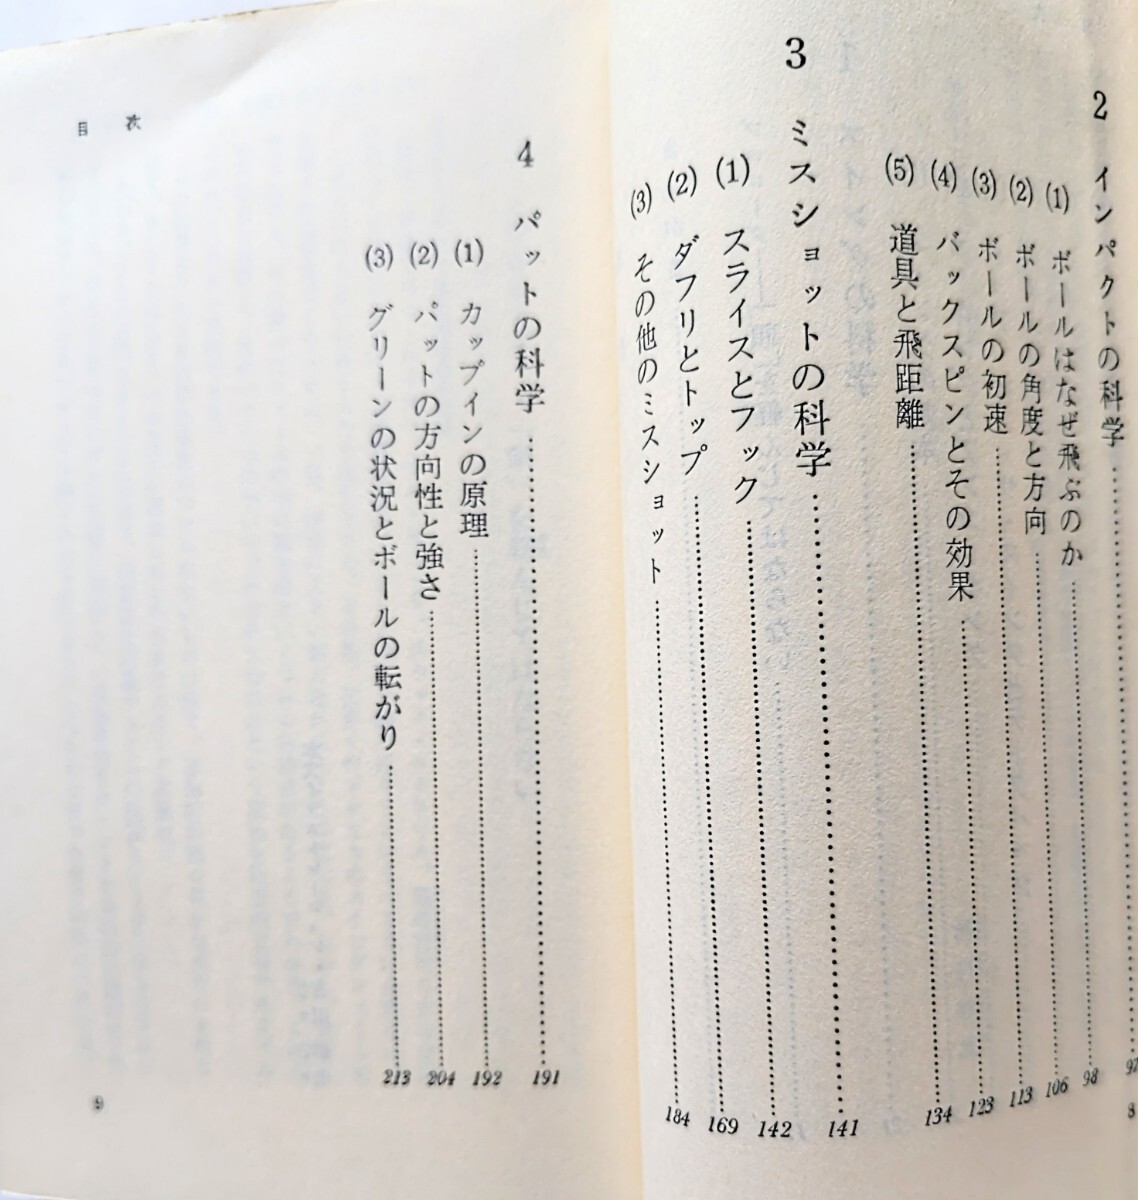 2 インパクトの科学……97
(1) ボールはなぜ飛ぶのか……98
(2) ボールの角度と方向……106
(3) ボールの初速……113
(4) バックスピンとその効果……123
(5) 道具と飛距離……134
3 ミスショットの科学……141
(1) スライスとフック……142
(2) ダフリとトップ……169
(3) その他のミスショット……184
8
4 パットの科学……191
(1) カップインの原理……192
(2) パットの方向性と強さ……204
(3) グリーンの状況とボールの転がり……213
目次
9